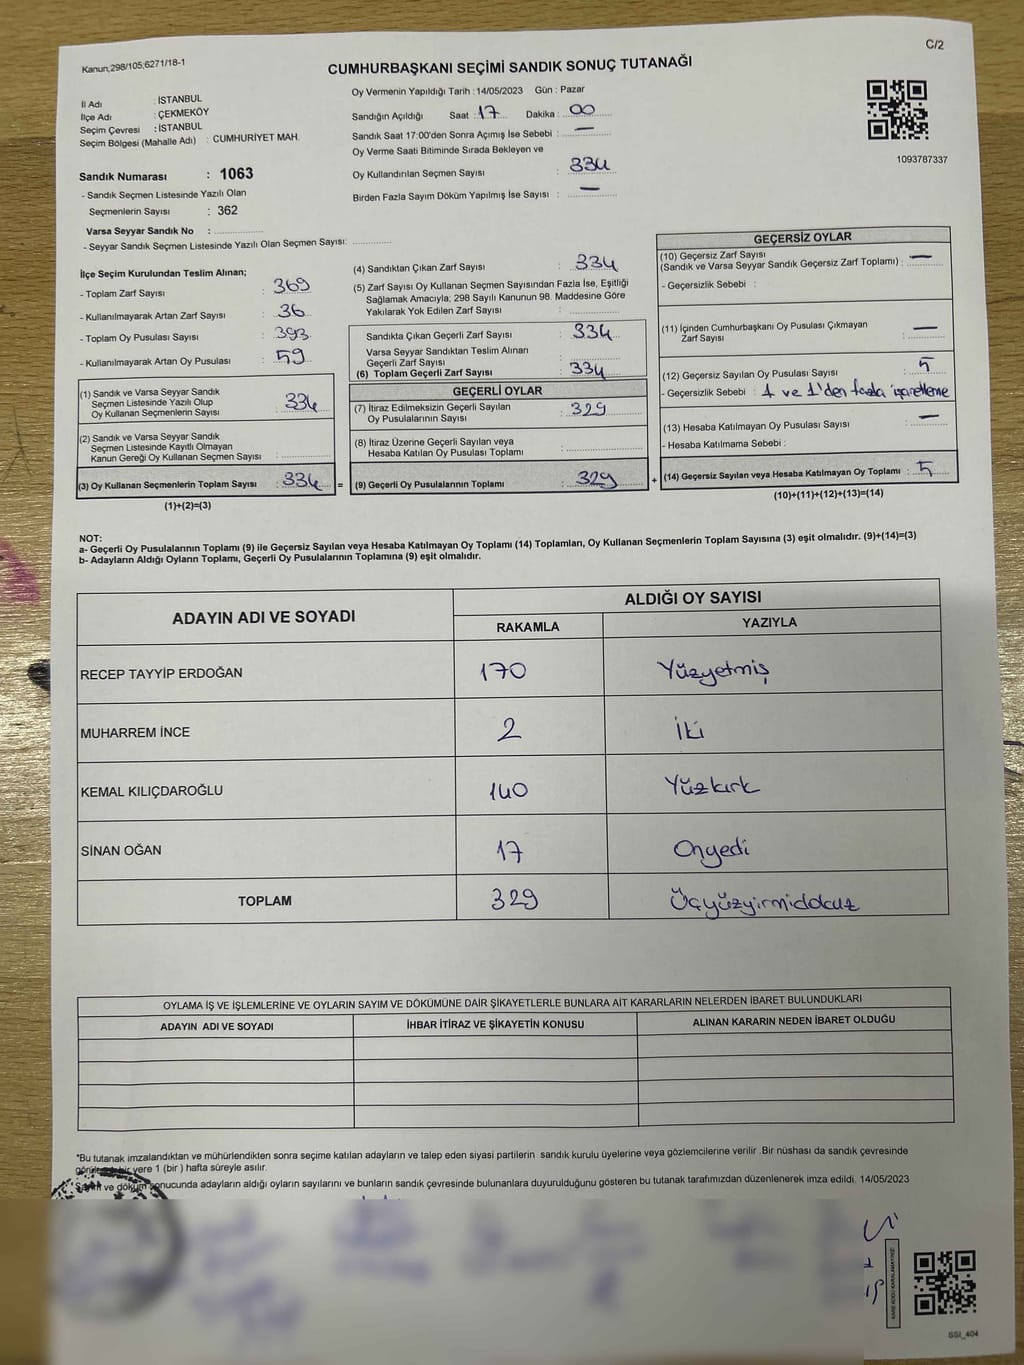 Kanun;298/105;6271/18-1
C/2
CUMHURBAŞKANI SEÇİMİ SANDIK SONUÇ TUTANAĞI
İl Adı : İSTANBUL
İlçe Adı : ÇEKMEKÖY
Seçim Çevresi : İSTANBUL
Seçim Bölgesi (Mahalle Adı) : CUMHURİYET MAH.
Sandık Numarası : 1063
- Sandık Seçmen Listesinde Yazılı Olan
Seçmenlerin Sayısı : 362
Varsa Seyyar Sandık No :
- Seyyar Sandık Seçmen Listesinde Yazılı Olan Seçmen Sayısı:
Oy Vermenin Yapıldığı Tarih : 14/05/2023 Gün : Pazar
Sandığın Açıldığı Saat : 17 Dakika : 00
Sandık Saat 17:00'den Sonra Açımış İse Sebebi : —
Oy Verme Saati Bitiminde Sırada Bekleyen ve
Oy Kullandırılan Seçmen Sayısı : 334
Birden Fazla Sayım Döküm Yapılmış İse Sayısı : —
1093787337
İlçe Seçim Kurulundan Teslim Alınan;
- Toplam Zarf Sayısı : 369
- Kullanılmayarak Artan Zarf Sayısı : 36
- Toplam Oy Pusulası Sayısı : 393
- Kullanılmayarak Artan Oy Pusulası : 59
(1) Sandık ve Varsa Seyyar Sandık
Seçmen Listesinde Yazılı Olup
Oy Kullanan Seçmenlerin Sayısı : 334
(2) Sandık ve Varsa Seyyar Sandık
Seçmen Listesinde Kayıtlı Olmayan
Kanun Gereği Oy Kullanan Seçmen Sayısı :
(3) Oy Kullanan Seçmenlerin Toplam Sayısı : 334
(1)+(2)=(3)
=
(4) Sandıktan Çıkan Zarf Sayısı : 334
(5) Zarf Sayısı Oy Kullanan Seçmen Sayısından Fazla İse, Eşitliği
Sağlamak Amacıyla; 298 Sayılı Kanunun 98. Maddesine Göre
Yakılarak Yok Edilen Zarf Sayısı :
Sandıkta Çıkan Geçerli Zarf Sayısı : 334
Varsa Seyyar Sandıktan Teslim Alınan
Geçerli Zarf Sayısı :
(6) Toplam Geçerli Zarf Sayısı : 334
GEÇERLİ OYLAR
(7) İtiraz Edilmeksizin Geçerli Sayılan
Oy Pusulasının Sayısı : 329
(8) İtiraz Üzerine Geçerli Sayılan veya
Hesaba Katılan Oy Pusulası Toplamı :
(9) Geçerli Oy Pusulalarının Toplamı : 329
+
GEÇERSİZ OYLAR
(10) Geçersiz Zarf Sayısı
(Sandık ve Varsa Seyyar Sandık Geçersiz Zarf Toplamı) : —
- Geçersizlik Sebebi :
(11) İçinden Cumhurbaşkanı Oy Pusulası Çıkmayan
Zarf Sayısı : —
(12) Geçersiz Sayılan Oy Pusulası Sayısı : 5
- Geçersizlik Sebebi : 1 ve 1'den fazla işaretleme
(13) Hesaba Katılmayan Oy Pusulası Sayısı : —
- Hesaba Katılmama Sebebi :
(14) Geçersiz Sayılan veya Hesaba Katılmayan Oy Toplamı : 5
(10)+(11)+(12)+(13)=(14)
NOT:
a- Geçerli Oy Pusulalarının Toplamı (9) ile Geçersiz Sayılan veya Hesaba Katılmayan Oy Toplamı (14) Toplamları, Oy Kullanan Seçmenlerin Toplam Sayısına (3) eşit olmalıdır. (9)+(14)=(3)
b- Adayların Aldığı Oyların Toplamı, Geçerli Oy Pusulalarının Toplamına (9) eşit olmalıdır.
ADAYIN ADI VE SOYADI
ALDIĞI OY SAYISI
RAKAMLA YAZIYLA
RECEP TAYYİP ERDOĞAN 170 Yüzyetmiş
MUHARREM İNCE 2 İki
KEMAL KILIÇDAROĞLU 140 Yüzkırk
SİNAN OĞAN 17 Onyedi
TOPLAM 329 Üçyüzyirmidokuz
OYLAMA İŞ VE İŞLEMLERİNE VE OYLARIN SAYIM VE DÖKÜMÜNE DAİR ŞİKAYETLERLE BUNLARA AİT KARARLARIN NELERDEN İBARET BULUNDUKLARI
ADAYIN ADI VE SOYADI İHBAR İTİRAZ VE ŞİKAYETİN KONUSU ALINAN KARARIN NEDEN İBARET OLDUĞU
*Bu tutanak imzalandıktan ve mühürlendikten sonra seçime katılan adayların ve talep eden siyasi partilerin sandık kurulu üyelerine veya gözlemcilerine verilir .Bir nüshası da sandık çevresinde
bir yere 1 (bir ) hafta süreyle asılır.
ve döküm sonucunda adayların aldığı oyların sayılarını ve bunların sandık çevresinde bulunanlara duyurulduğunu gösteren bu tutanak tarafımızdan düzenlenerek imza edildi. 14/05/2023
KARE KODU KARALAMAYINIZ!
SSI_404